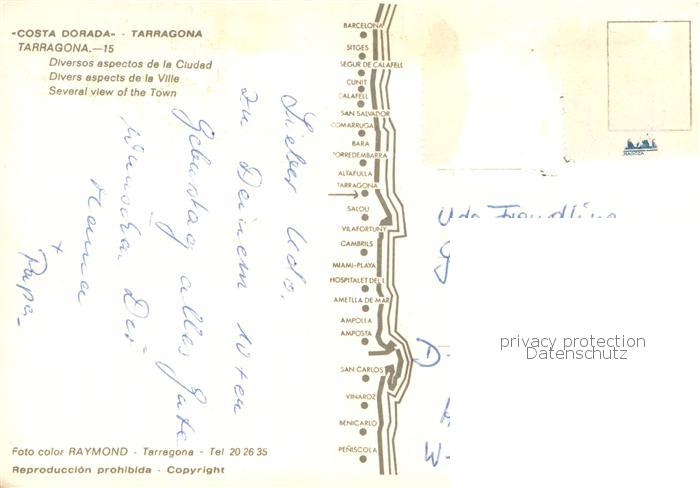 -COSTA DORADA- - TARRAGONA
TARRAGONA.—15
Diversos aspectos de la Ciudad
Divers aspects de la Ville
Several view of the Town
Lieber Udo,
zu Deinem 10ten
Geburtstag alles Gute
wünschen Dir
Mama
+
Papa-
BARCELONA
SITGES
SEGUR DE CALAFELL
CUNIT
CALAFELL
SAN SALVADOR
COMARRUGA
BARA
TORREDEMBARRA
ALTAFULLA
TARRAGONA
SALOU
VILAFORTUNY
CAMBRILS
MIAMI-PLAYA
HOSPITALET DEL I.
AMETLLA DE MAR
AMPOLLA
AMPOSTA
SAN CARLOS
VINAROZ
BENICARLO
PEÑISCOLA
Udo
privacy protection
Datenschutz
Foto color RAYMOND - Tarragona - Tel 20 26 35
Reproducción prohibida - Copyright